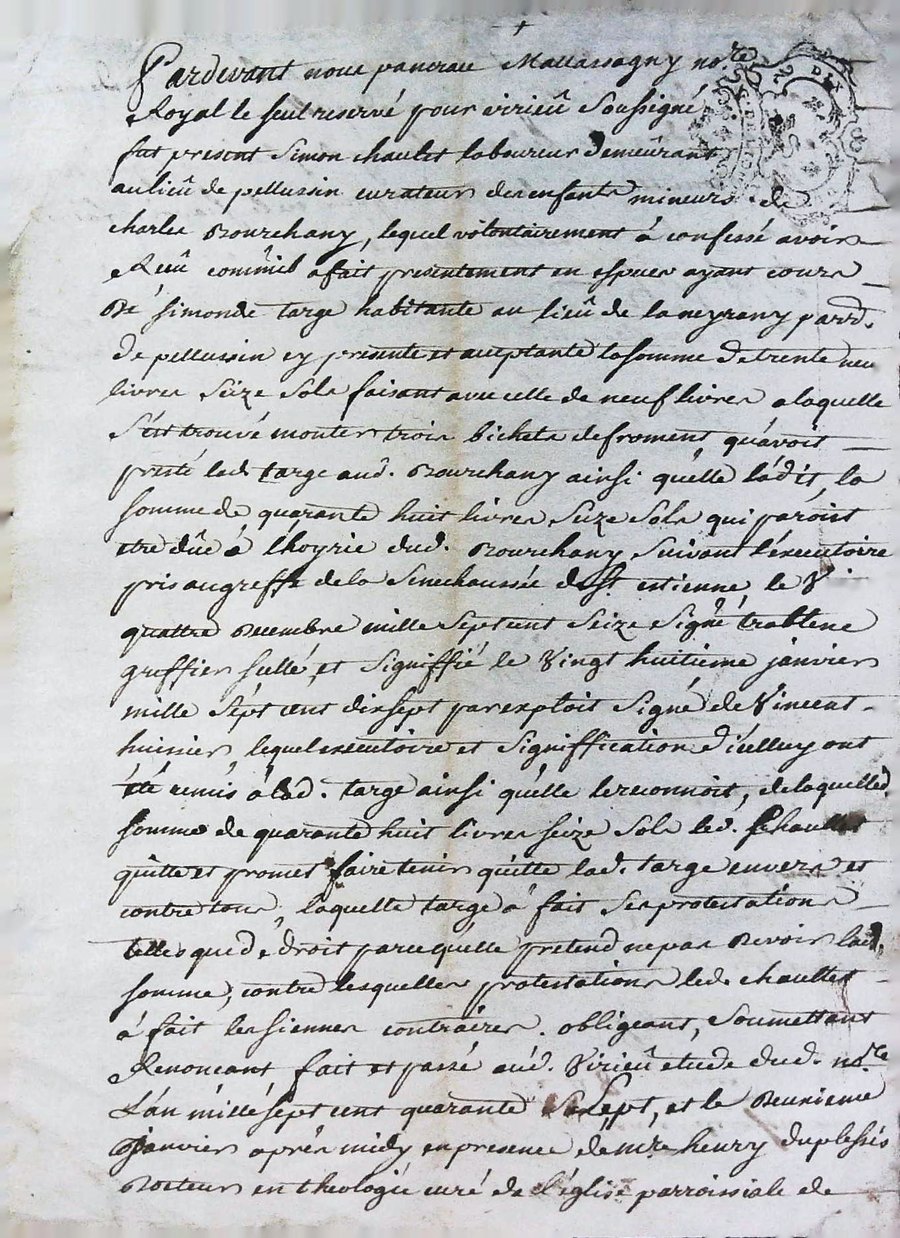 Pardevant nous pancrau Mattassagny no.re
Royal le seul reservé pour virieû Soussigné
fut present Simon chaulet laboureur demeûrant
au lieû de pellussin curateur des enfants mineurs de
charles Bourchany, lequel volontairement à confessé avoir
Reçû comm'il a fait presentement en espues ayant cours
De simonde targe habitante au lieû de la neyrany parr.
de pellussin cy presente et aceptante la somme de trente neu
livres Seize Sols faisant avec celle de neuf livres a laquelle
S'est trouvé monter trois bichets de froment qu'avoit
presté lad. targe aud. Bourchany ainsi qu'elle l'a dit, la
somme de quarante huit livres Seize Sols qui paroist
etre dûe à l'hoyrie dud. Bourchany, Suivant l'executoire
pris au greffe de la Senechaussée de St estienne, le V
quattre Decembre mille Sept cent Seize Signé trablene
greffier sellé, et Signiffié le Vingt huitieme janvier
mille Sept cent dix sept par exploit Signé de Vincent
huissier lequel executoire et Signiffication d'icelluy ont
été remis à lad. targe ainsi qu'elle le reconnoit, de laquelle d.
somme de quarante huit livres seize Sols led. chaullet
quitte et promet faire tenir quitte lad. targe envers et
contre tous, laquelle targe à fait Ses protestations
telles que de droit parce qu'elle pretend ne pas Devoir lad.
somme, contre lesquelles protestations led. chaullet
à fait les siennes contraires. obligeant, Soumettant
Renoncant fait et passé aud. Virieû etude dud. no.re
L'an mille sept cent quarante Sept, et le Deuxieme
Janvier aprés midy en presence de m.re henry duplessis
Docteur en theologie curé de l'église parroissiale de